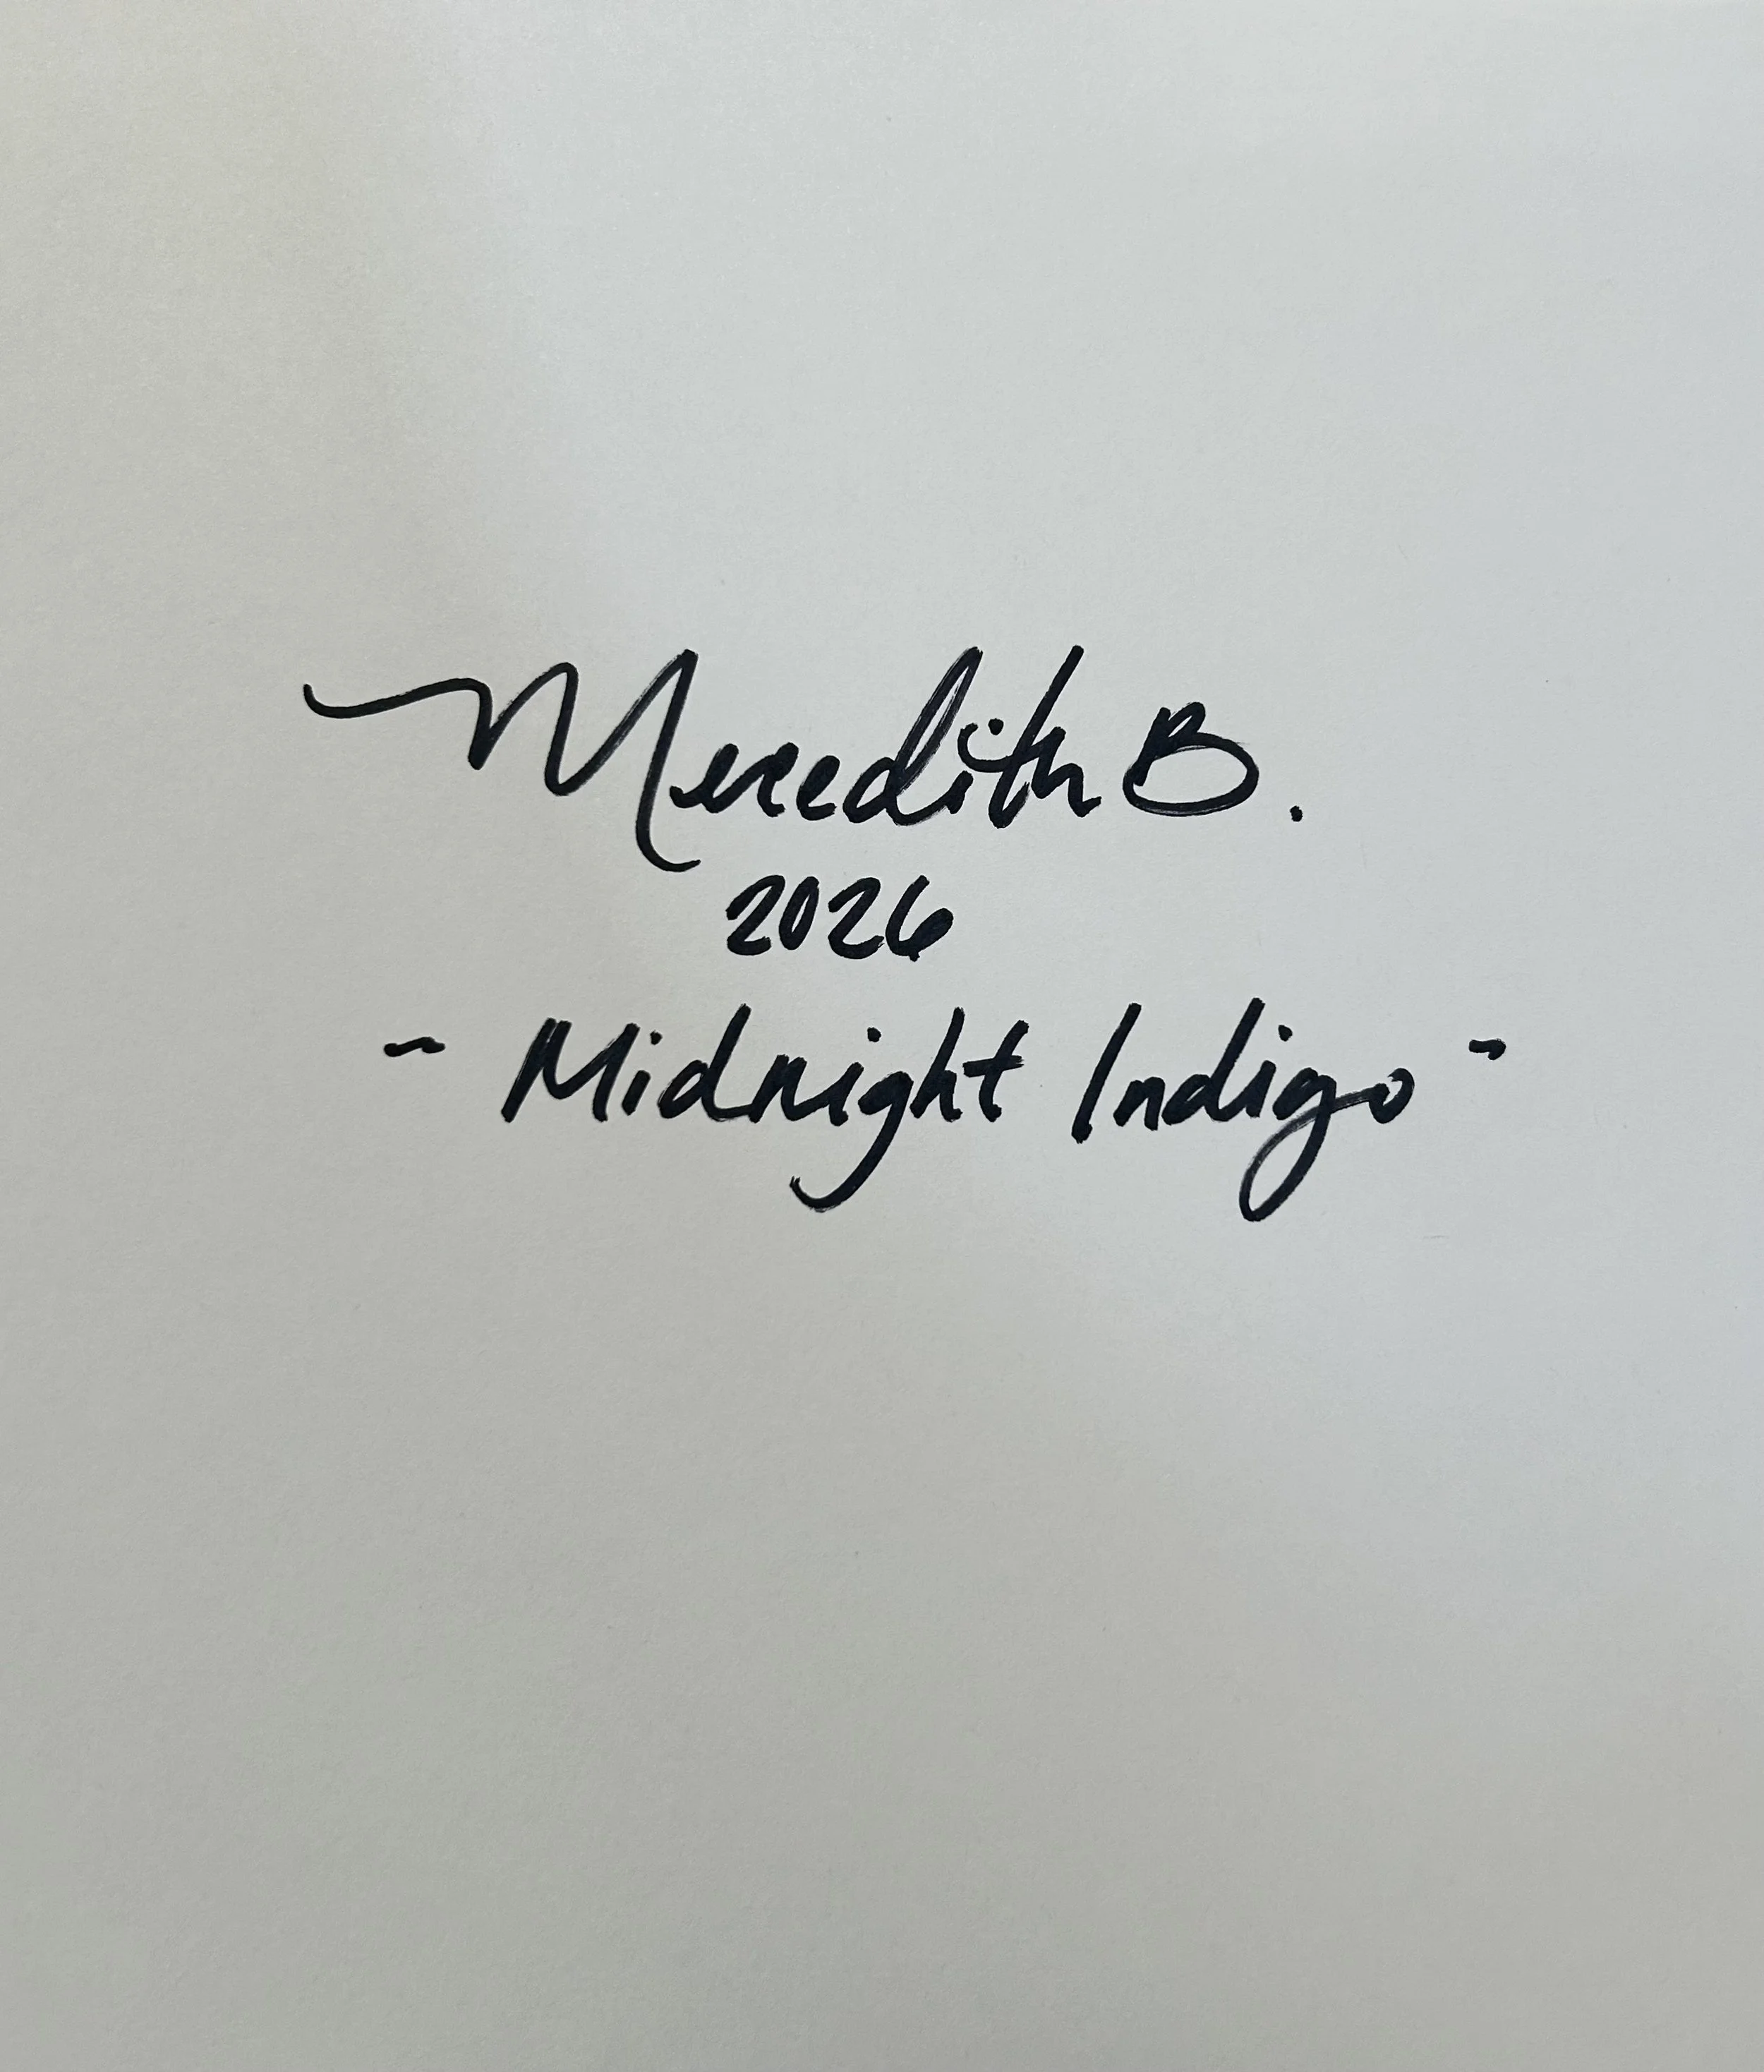 Meredith B.
2026
~ Midnight Indigo ~